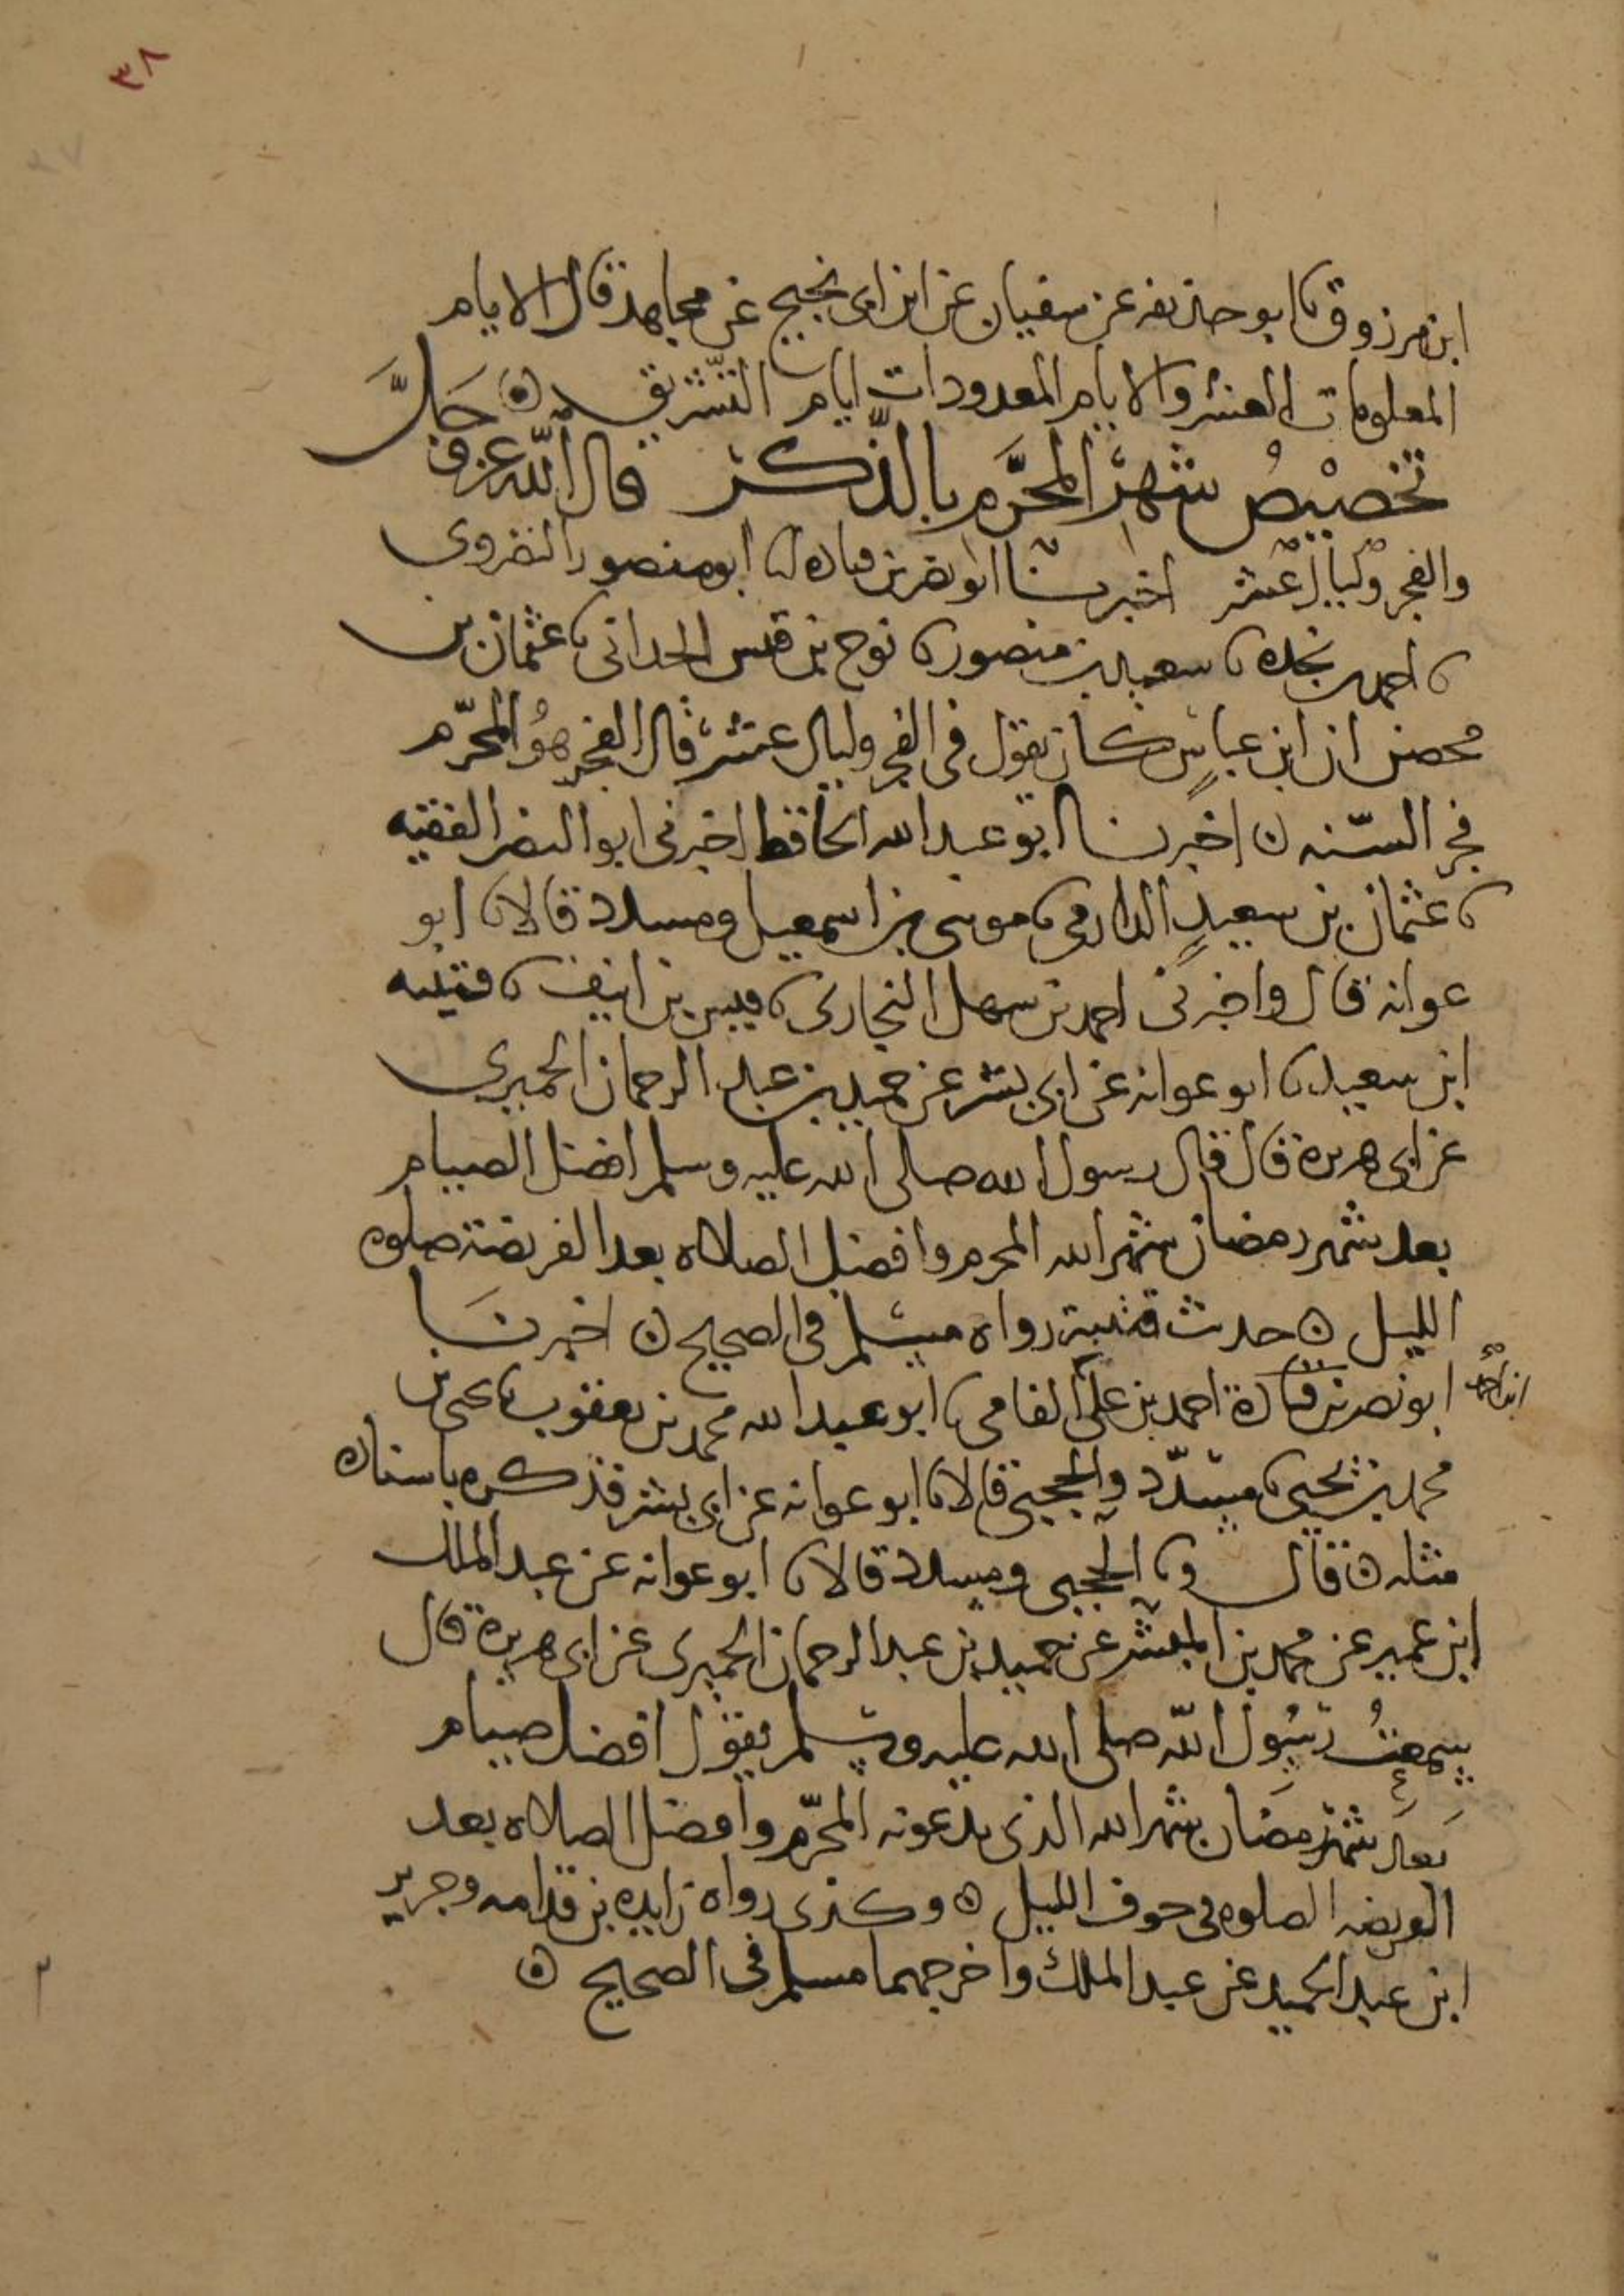 ٣٨
ابن مرزوق نا ابو حذيفه عن سفيان عن ابن ابي نجيح عن مجاهد قال الايام
المعلومات العشر والايام المعدودات ايام التشريق ه
تخصيص شهر المحرّم بالذّكر قال الله عز وجلّ
والفجر وليال عشر اخبرنا ابو نصر بن قتاده انا ابو منصور النضروي
نا احمد بن نجده نا سعيد بن منصور نا نوح بن قيس الحداني نا عثمان بن
محصن ان ابن عباس كان يقول في الفجر وليال عشر قال الفجر هو المحرّم
فجر السّنه ه اخبرنا ابو عبد الله الحافظ اخبرني ابو النضر الفقيه
نا عثمان بن سعيد الدارمي نا موسى بن اسمعيل ومسدد قالا نا ابو
عوانه قال واخبرني احمد بن سهل البخاري نا قيس بن انيف نا قتيبه
ابن سعيد نا ابو عوانه عن ابي بشر عن حميد بن عبد الرحمان الحميري
عن ابي هريرة قال قال رسول الله صلى الله عليه وسلم افضل الصيام
بعد شهر رمضان شهر الله المحرم وافضل الصلاه بعد الفريضة صلوه
الليل ه حديث قتيبة رواه مسلم في الصحيح ه اخبرنا
ابو نصر بن قتادة احمد بن علي الفامي نا ابو عبد الله محمد بن يعقوب نا يحيى بن
محمد بن يحيى نا مسدّد والحجبي قالا نا ابو عوانه عن ابي بشر فذكره باسناده
مثله ه قال ونا الحجبي ومسدد قالا نا ابو عوانه عن عبد الملك
ابن عمير عن محمد بن المنتشر عن حميد بن عبد الرحمان الحميري عن ابي هريرة قال
سمعت رسول الله صلى الله عليه وسلم يقول افضل صيام
بعد شهر رمضان شهر الله الذي يدعونه المحرّم وافضل الصلاه بعد
الفريضه الصلوه في جوف الليل ه وكذى رواه زايده بن قدامه وجرير
ابن عبد الحميد عن عبد الملك واخرجهما مسلم في الصحيح ه